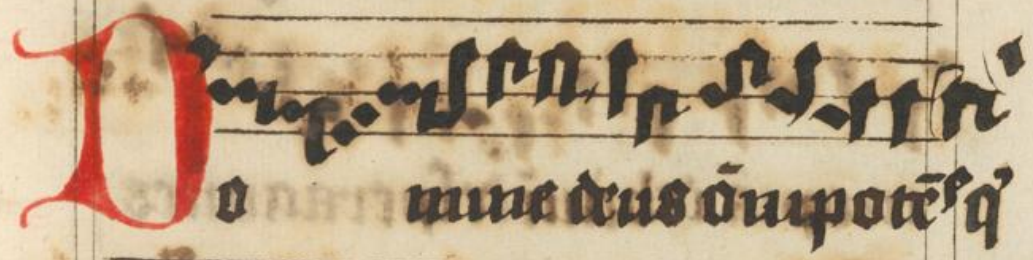 Do mine deus o̅mpote̅s q̓